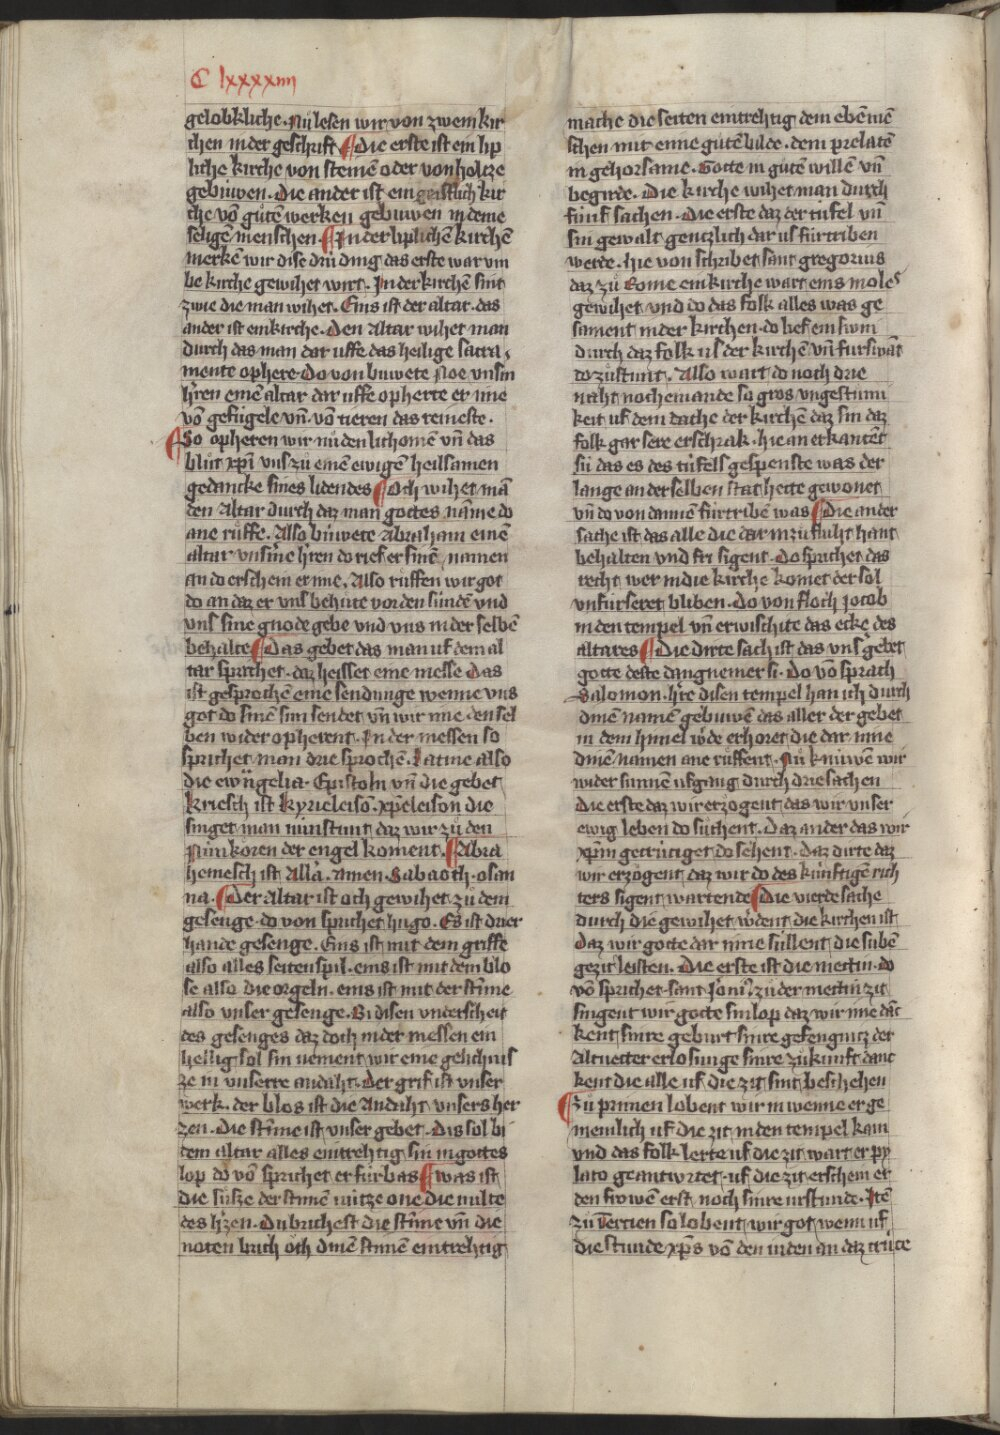 C lxxxxiiii
gelobkliche. Nů lesen wir von zwein kir
chen in der geschrift ¶ Die erste ist ein lip
liche kirche von steinē oder von holtze
gebuwen. Die ander ist ein geistlich kir
che vō gůten werken gebuwen in deme
seligē menschen. ¶ In der liplichē kirchē
merkē wir dise drú ding das erste war vm
be kirche gewihet wirt. In der kirchē sint
zwie die man wihet. Eins ist der altar. das
ander ist ein kirche. Den altar wihet man
durch das man dar uffe das heilige sacra
mente ophere. Do von buwete Noe vnsm
h'ren einē altar dar uffe opherte er ime
vō gefúgele vn̄. vō tieren das reineste.
¶ So opheren wir nů den lichomē vn̄ das
blůt xp̄i vns zů einē ewigē heilsamen
gedancke sines lidendes ¶ Och wihet mā
den Altar durch daz man gottes nam̄e do
ane růffe. Also búwete Abraham einē
altar vnsme h'ren do rief er sinē namen
an do erschein er ime. Also růffen wir got
do an daz er vns behůte vor den súndē vnd
vns sine gnode gebe vnd vns in der selbē
behalte ¶ Das gebet das man uf dem al
tar sprichet. daz heisset eine messe. Das
ist gesprochē eine sendunge wenne vns
got do sinē sun sendet vn̄ wir ime den sel
ben wider opherent. In der messen so
sprichet man drie sprochē. Latine also
die ewangelia. Epistoln vn̄ die gebet
kriesch ist kyrieleisō. xp̄eleison die
singet man núnstunt daz wir zů den
Nún kören der engel koment. ¶ Abra
hemesch ist All'a. Amen. Sabaoth. osan
na. ¶ Der Altar ist och gewihet zů dem
gesenge. do von sprichet hugo. Es ist drier
hande gesenge. Eins ist mit dem griffe
also alles seitenspil. eins ist mit dem blo
se also die orgeln. eins ist mit der stīme
also vnser gesenge. Bi disen vnderscheit
des gesenges daz doch in der messen ein
hellig sol sin nement wir eine gelichnis
ze in vnserre andaht. Der grif ist vnser
werk. der blos ist die Andaht vnsers her
zen. Die stīme ist vnser gebet. Dis sol bi
dem altar alles eintrehtig sin in gottes
lop do vō sprichet er fúrbas ¶ was ist
die sůsze der stimē nútze one die milte
des h'zen. Du brichest die stīme vn̄ die
noten brich och dinē sinnē eintrehtig
mache die seiten eintrehtig dem ebēmē
schen mit eime gůtē bilde. dem prelatē
in gehorsame. Gotte in gůtē willē vn̄
begirde. Die kirche wihet man durch
fúnf sachen. Die erste daz der túfel vn̄
sin gewalt gentzlich dar us fúrtriben
werde. hie von schribet sant gregorius
daz zů Rome ein kirche wart eins moles
gewihet vnd do das folk alles was ge
sament in der kirchen. do lief ein swin
durch daz folk us der kirchē vn̄ furswāt
do zůstunt. Also wart do noch drie
naht noch einande so gros vngestúmi
keit uf dem dache der kirchē daz sin daz
folk gar sere erschrak. hie an erkantēt
sú das es des túfels gespenste was der
lange an der selben stat hette gewonet
vn̄ do von dannē fúrtribē was ¶ Die ander
sache ist das alle die dar in zůfluht hant
behalten vnd fri sigent. Do sprichet das
recht. wer in die kirche komet der sol
vnfúrseret bliben. Do von floch jocob
in den tempel vn̄ erwischite das ecke des
altares ¶ Die dirte sach ist das vns gebet
gotte deste dangnemer si. Do vō sprach
Salomon. h're disen tempel han ich durch
dinē namē gebuwē das aller der gebet
in dem himel w'de erhoret die dar inne
dinē namen ane růffent. Nů knúwē wir
wider sunnen ufgang durch drie sachen
Die erste daz wir erzögent das wir vnser
ewig leben do sůchent. Daz ander das wir
xp̄m gecrútziget do sehent. Daz dirte daz
wir erzögent daz wir do des kúnftigē rich
ters sigent wartende ¶ Die vierde sache
durch die gewihet w'dent die kirchen ist
Daz wir gotte dar inne súllent die subē
gezit leisten. Die erste ist die mettin. do
vō sprichet sant Joh's zů der mettin zit
singent wir gotte sin lop daz wir ime dāc
kent sinre geburt sinre gefengnúz der
Altuetter erlosunge sinre zůkunft danc
kent die alle uf die zit sint beschehen
¶ Zů primen lobent wir in wenne er ge
meinlich uf die zit in den tempel kam
vnd das folk lerte uf die zit wart er py
lato geantwrtet. uf die zit erschein er
den frowen erst noch sinre vrstunde. Itē
zů Tercien so lobent wir got wenn uf
die stunde xp̄s vō den iuden an daz crútze